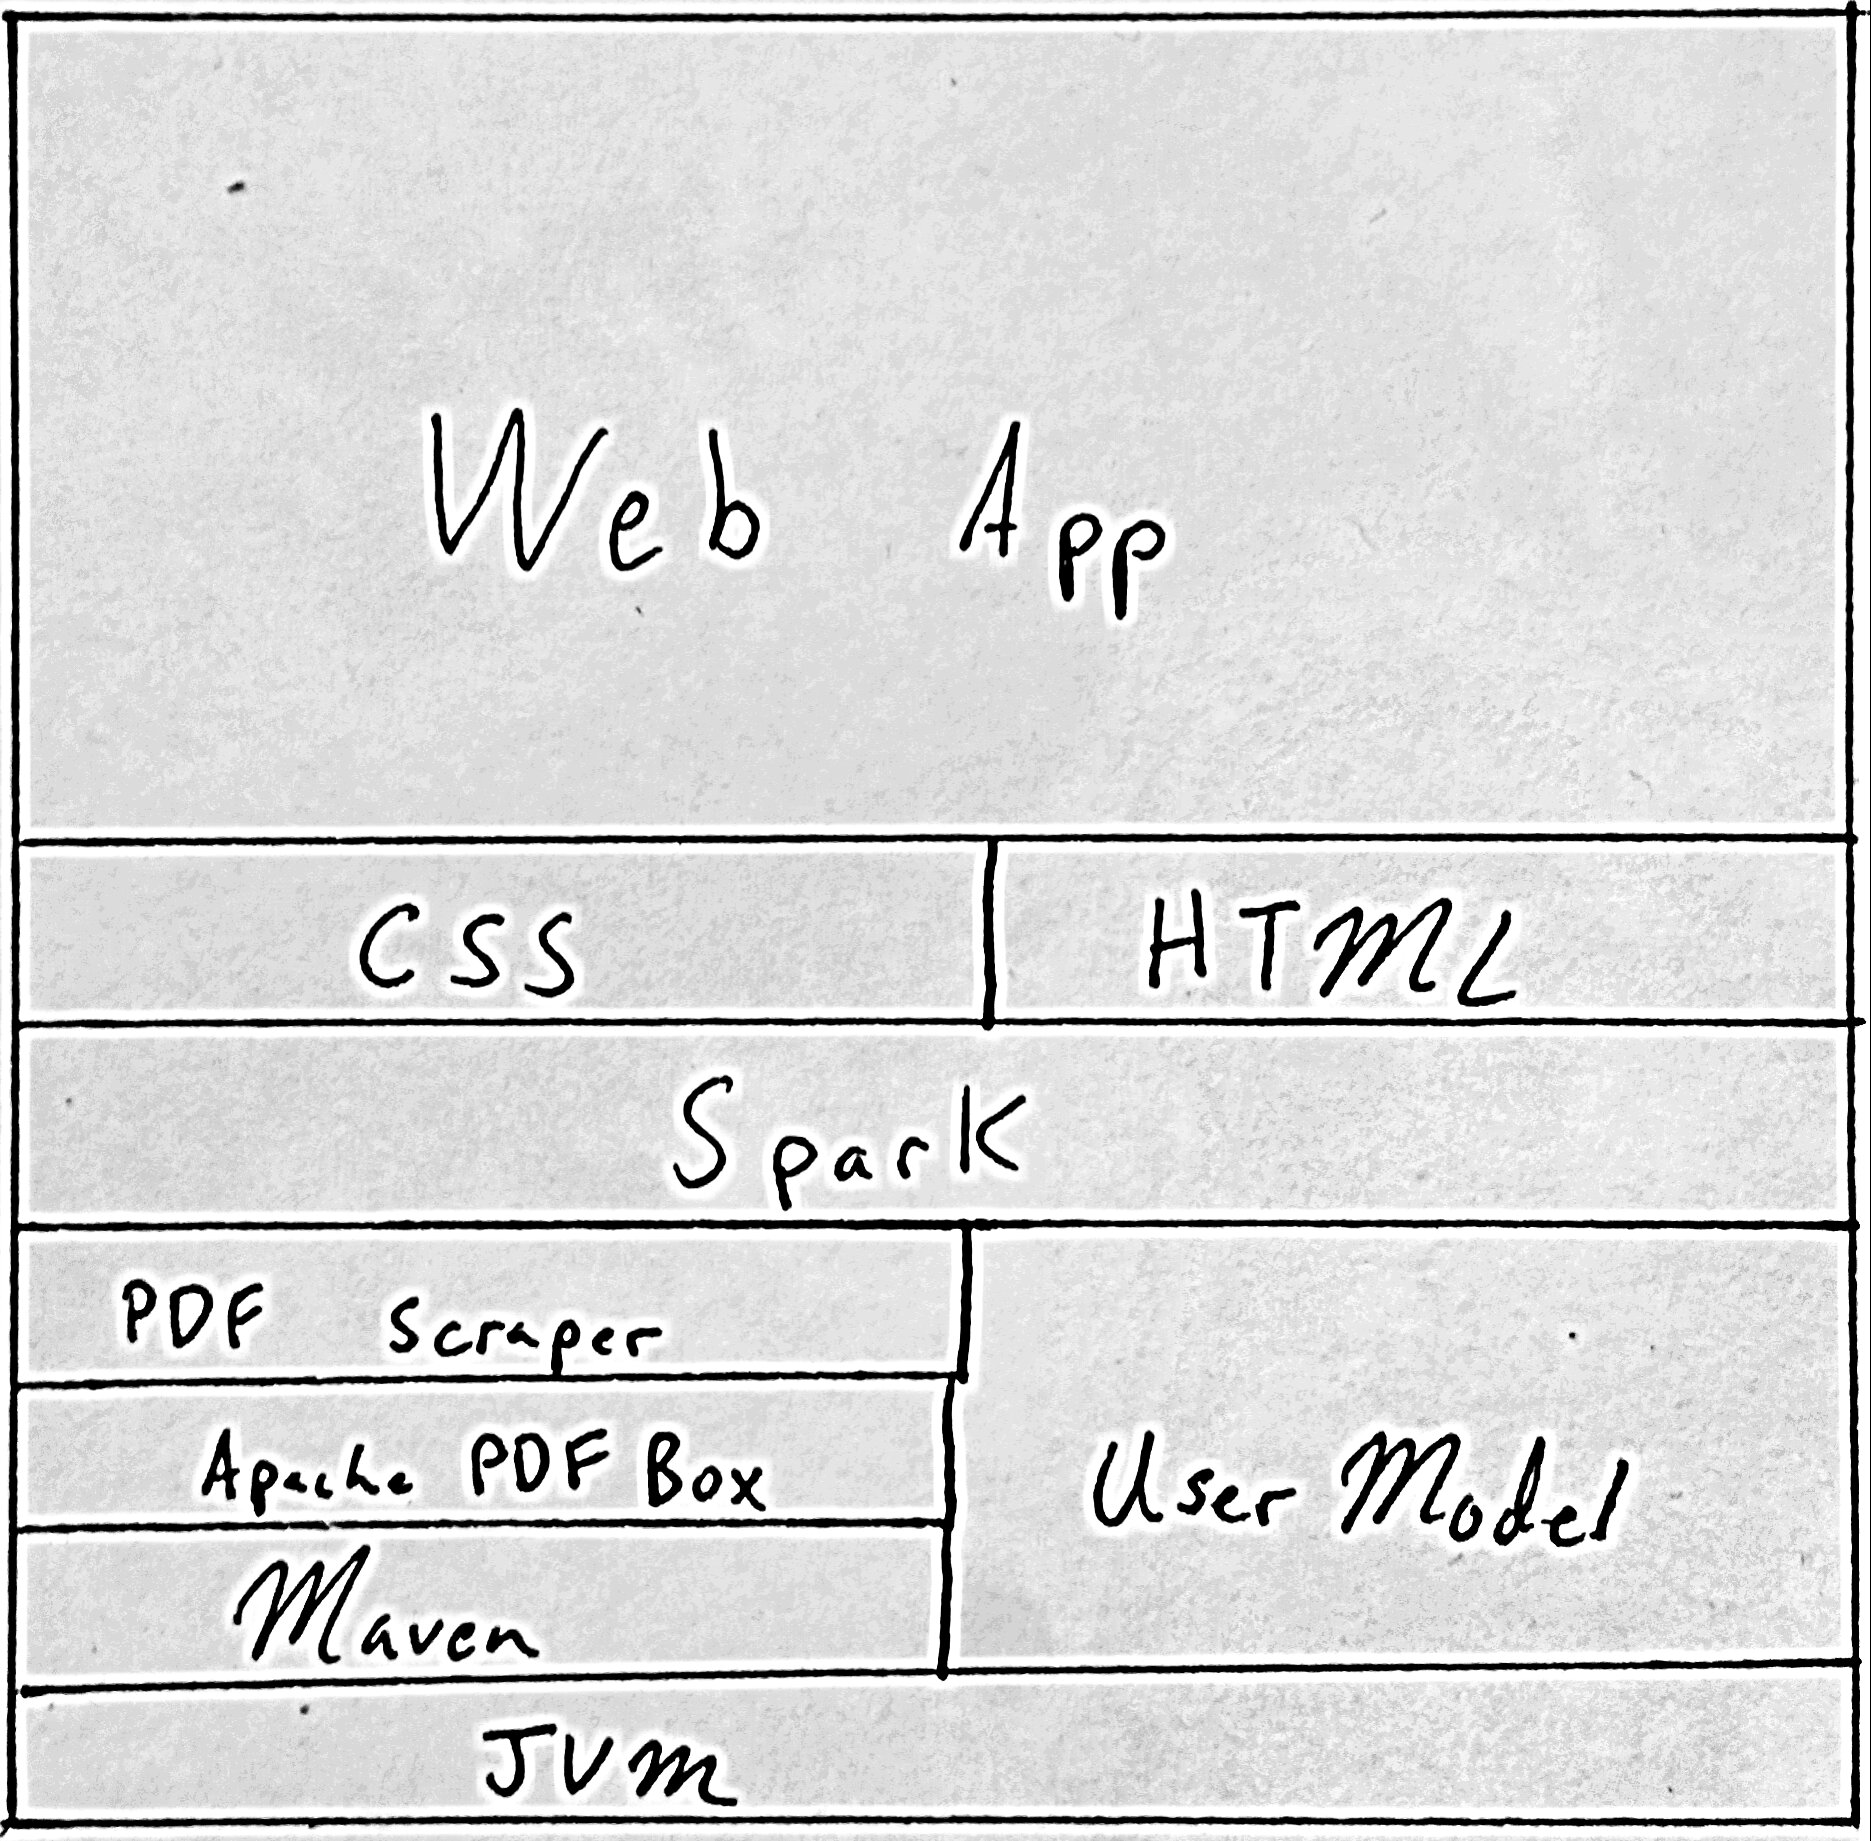 Web App
CSS
HTML
Spark
PDF Scraper
Apache PDF Box
User Model
Maven
JVM